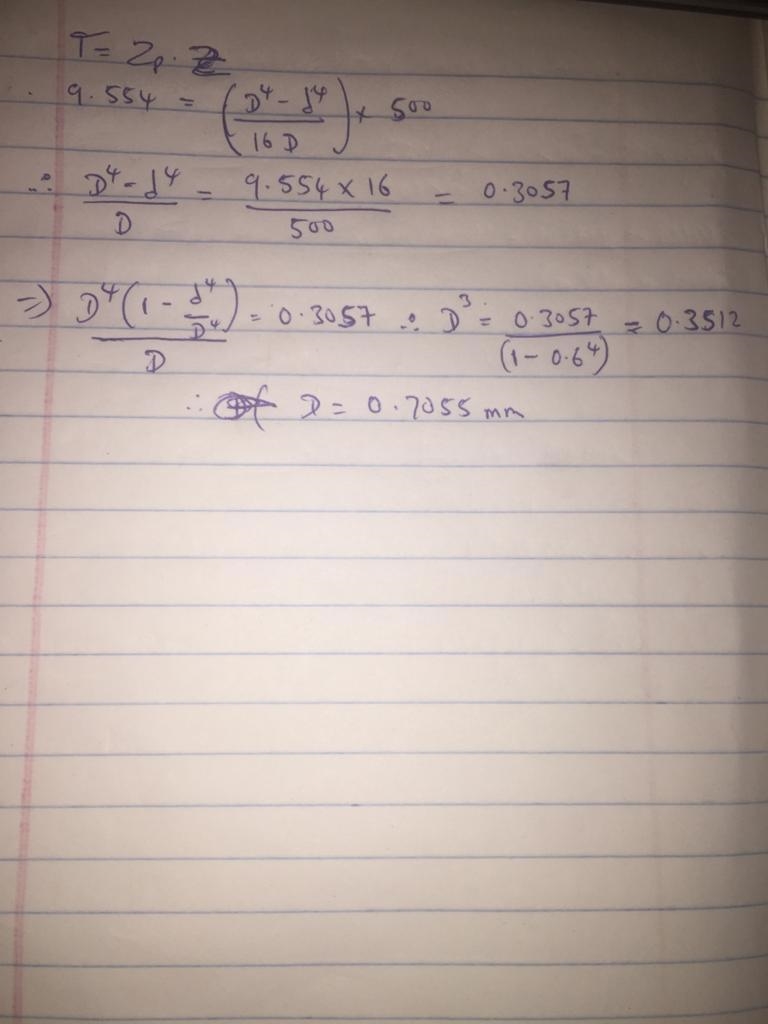 T = Zp.
9.554 = (D⁴ - d⁴ / 16 D) × 500
∴ D⁴ - d⁴ / D = 9.554 × 16 / 500 = 0.3057
⇒ D⁴(1 - d⁴/D⁴) / D = 0.3057 ∴ D³ = 0.3057 / (1 - 0.6⁴) = 0.3512
∴ D = 0.7055 mm